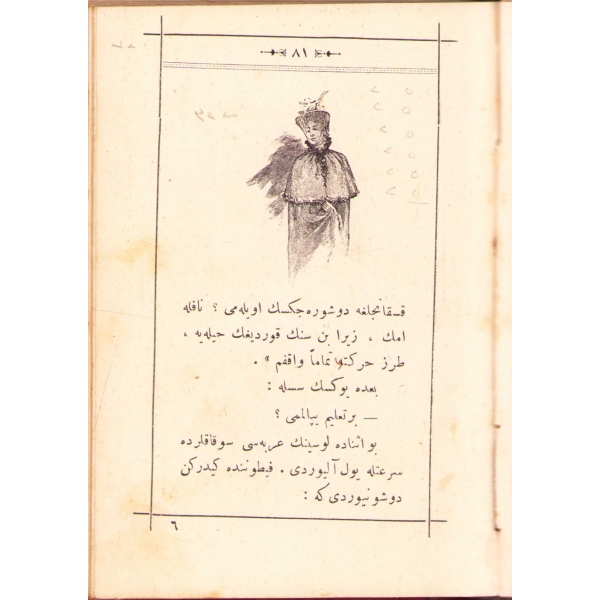 ٨١
قسقانجلغه دوشوره‌جكسك اويله‌می ؟ نافله
امك ، زيرا بن سنك قورديغك حيله‌يه ،
طرز حركته تماماً واقفم » .
بعده يوكسك سسله :
— بر تعليم يپالم‌می ؟
بو اثناده لوسينك عربه‌سی سوقاقلرده
سرعتله يول آليوردی . فيطوننده كيدركن
دوشونيوردی كه :
٦